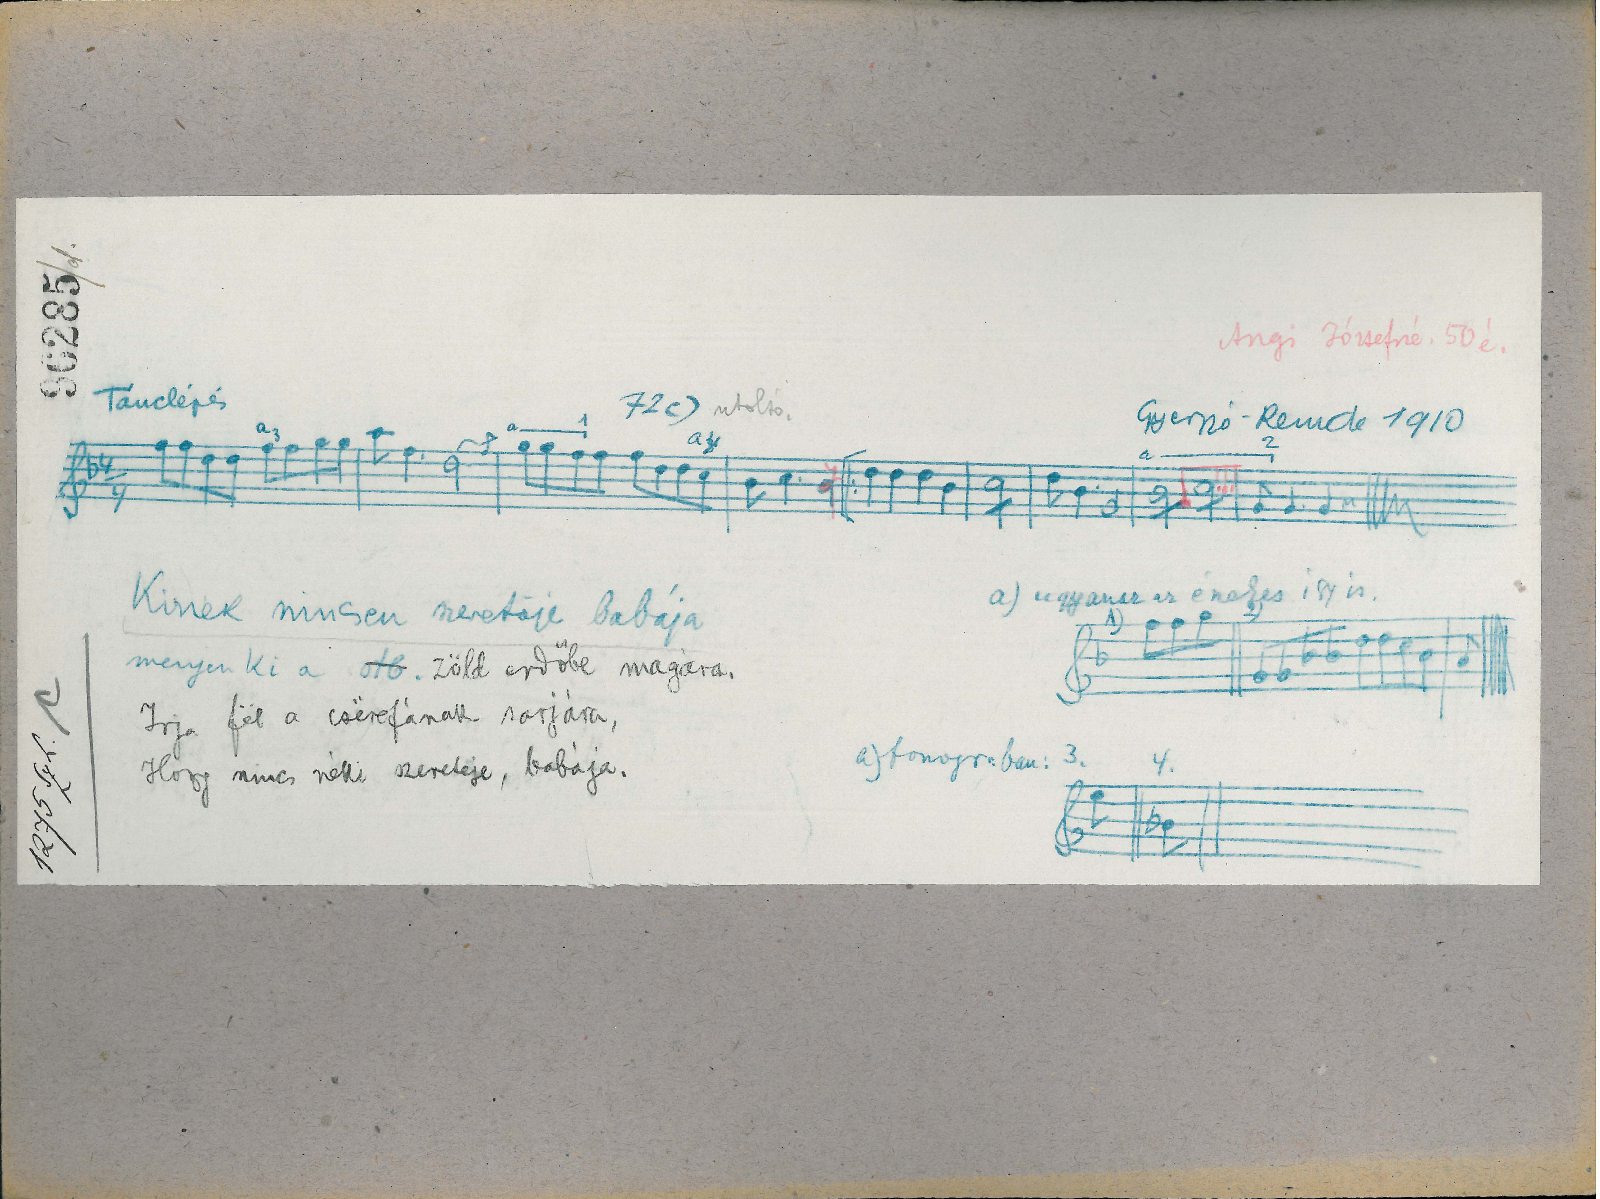 96285/d.
Angi Józsefné. 50 é.
Tánclépés
72c) utolsó.
Gyergyó-Remete 1910
a 3
a 1
a
a 2
4
4
Kinek nincsen szeretője babája
menyen ki a stb. zöld erdőbe magára.
Irja fël a csërefának sarjára,
Hogy nincs néki szeretője, babája.
a) ugyanaz az énekes így is.
1)
2)
a) fonográfban: 3. 4.